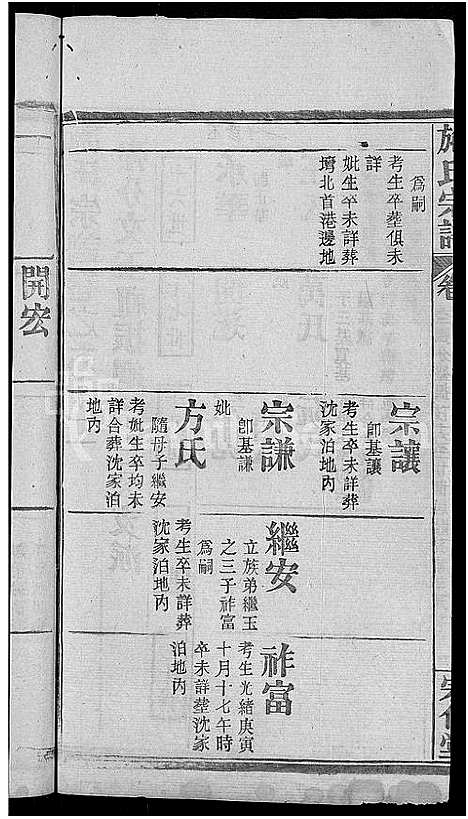 為嗣
考生卒塟俱未
詳
妣生卒未詳葬
壪北首港邊地
宗讓
卽基讓
考生卒未詳葬
沈家泊地內
宗謙
卽基謙
妣
方氏
隨母子繼安
考妣生卒均未
詳合葬沈家泊
地內
繼安
立族弟繼玉
之三子祚富
為嗣
考生卒未詳葬
沈家泊地內
祚富
考生光緒庚寅
十月十七午時
卒未詳塟沈家
泊地內
開宏